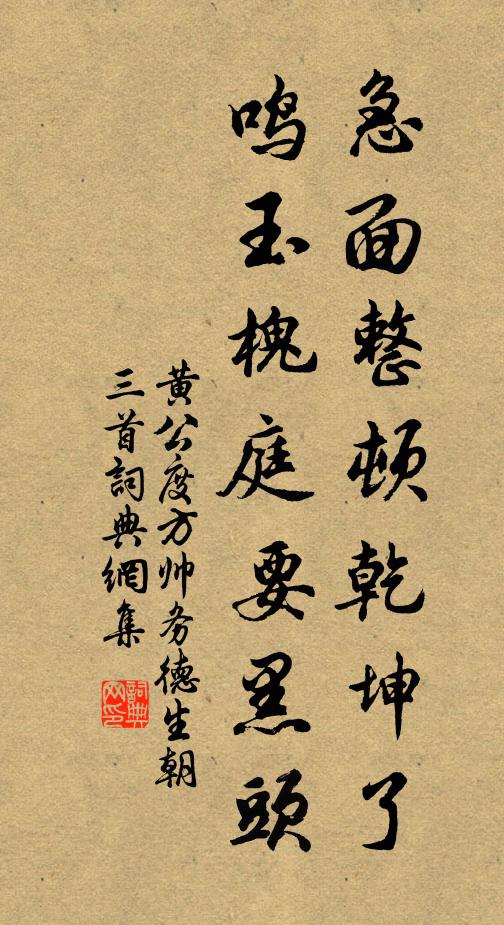 急面整顿乾坤了
鸣玉槐庭要黑头
黄公度方帅务德生朝
三首詞典網集
詞典网印